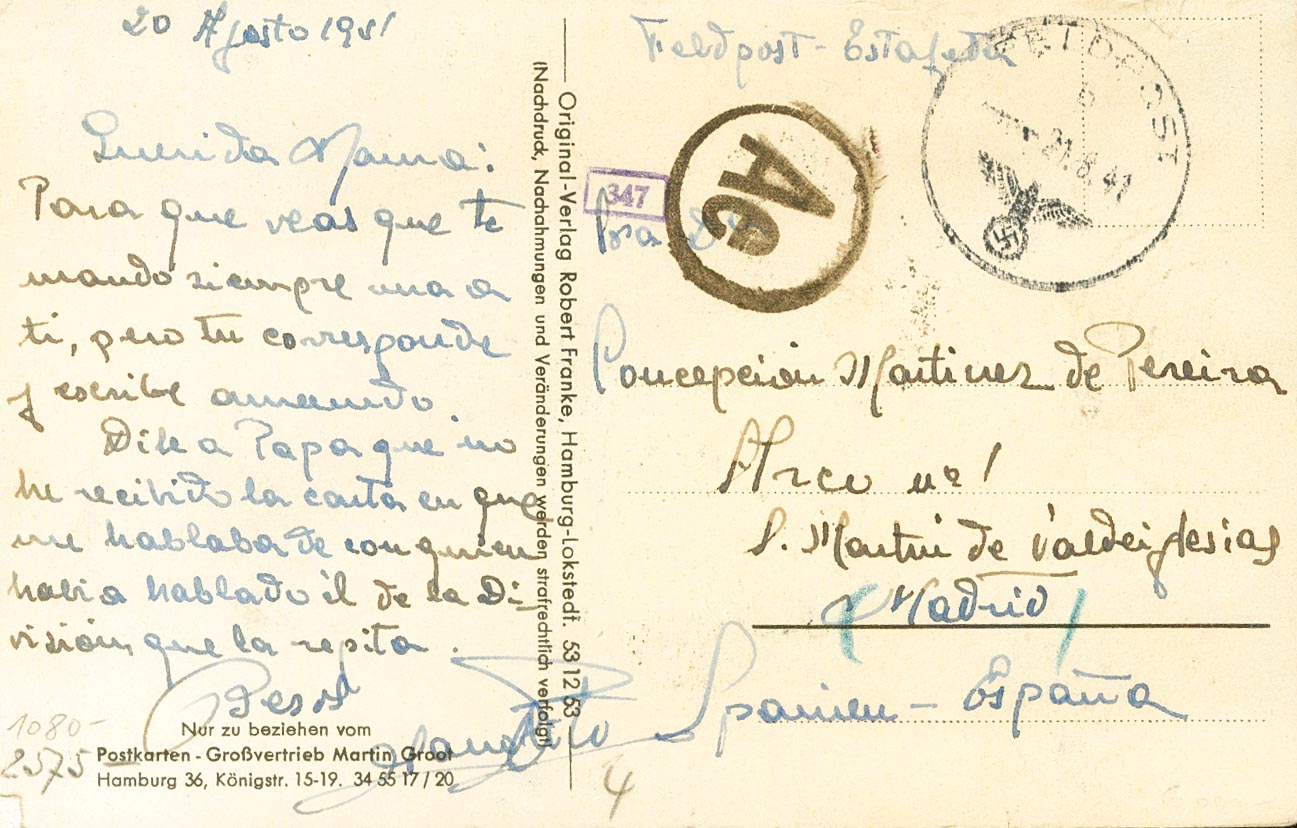 20 Agosto 1941
Querida Mama:
Para que veas que te
mando siempre una a
ti, pero tu corresponde
y escribe amando.
Dile a Papa que no
he recibido la carta en que
me hablaba de con quien
habia hablado él de la Di-
visión, que la repita.
Besos
Nur zu beziehen vom
Postkarten - Großvertrieb Martin Groot
Hamburg 36, Königstr. 15-19. 34 55 17 / 20
1080-
2575
Original-Verlag Robert Franke, Hamburg-Lokstedt. 53 12 53
(Nachdruck, Nachahmungen und Veränderungen werden strafrechtlich verfolgt)
Feldpost - Estafeta
FELDPOST
b
21.8.41
347
Ac
Concepción Martinez de Pereira
Arco nº 1
S. Martin de Valdeiglesias
Madrid
Spanien - España
4